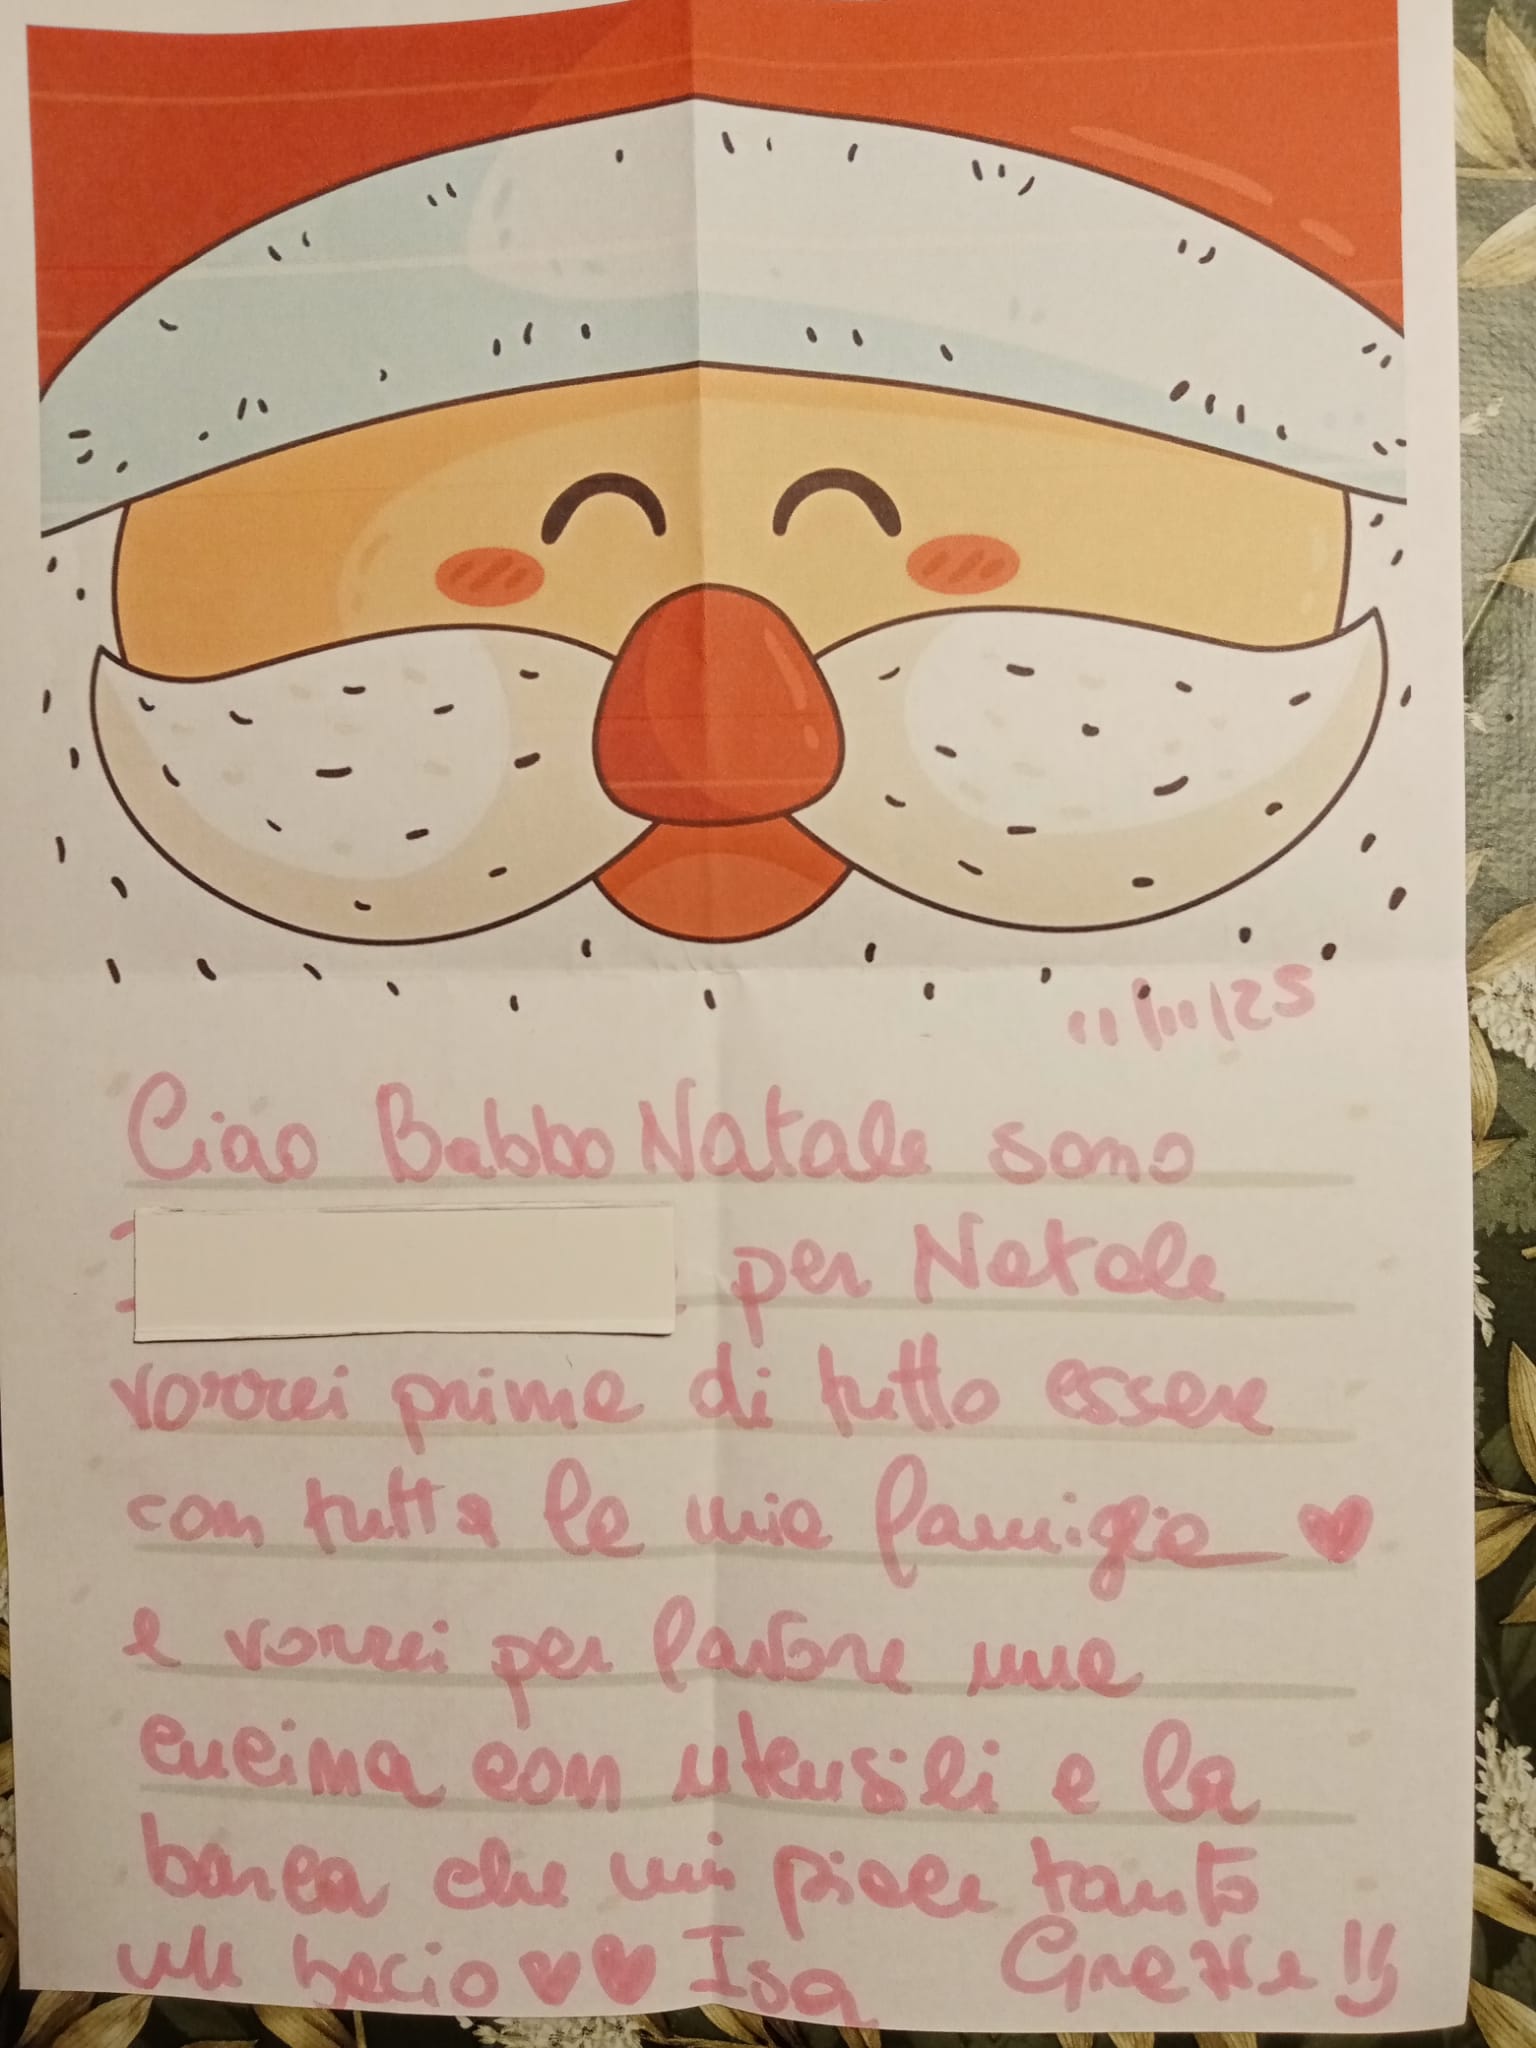 11/11/25
Ciao Babbo Natale sono
per Natale
vorrei prima di tutto essere
con tutta la mia famiglia ♥
e vorrei per favore una
cucina con utensili e la
barca che mi piace tanto
un bacio ♥♥ Isa Grazie !!